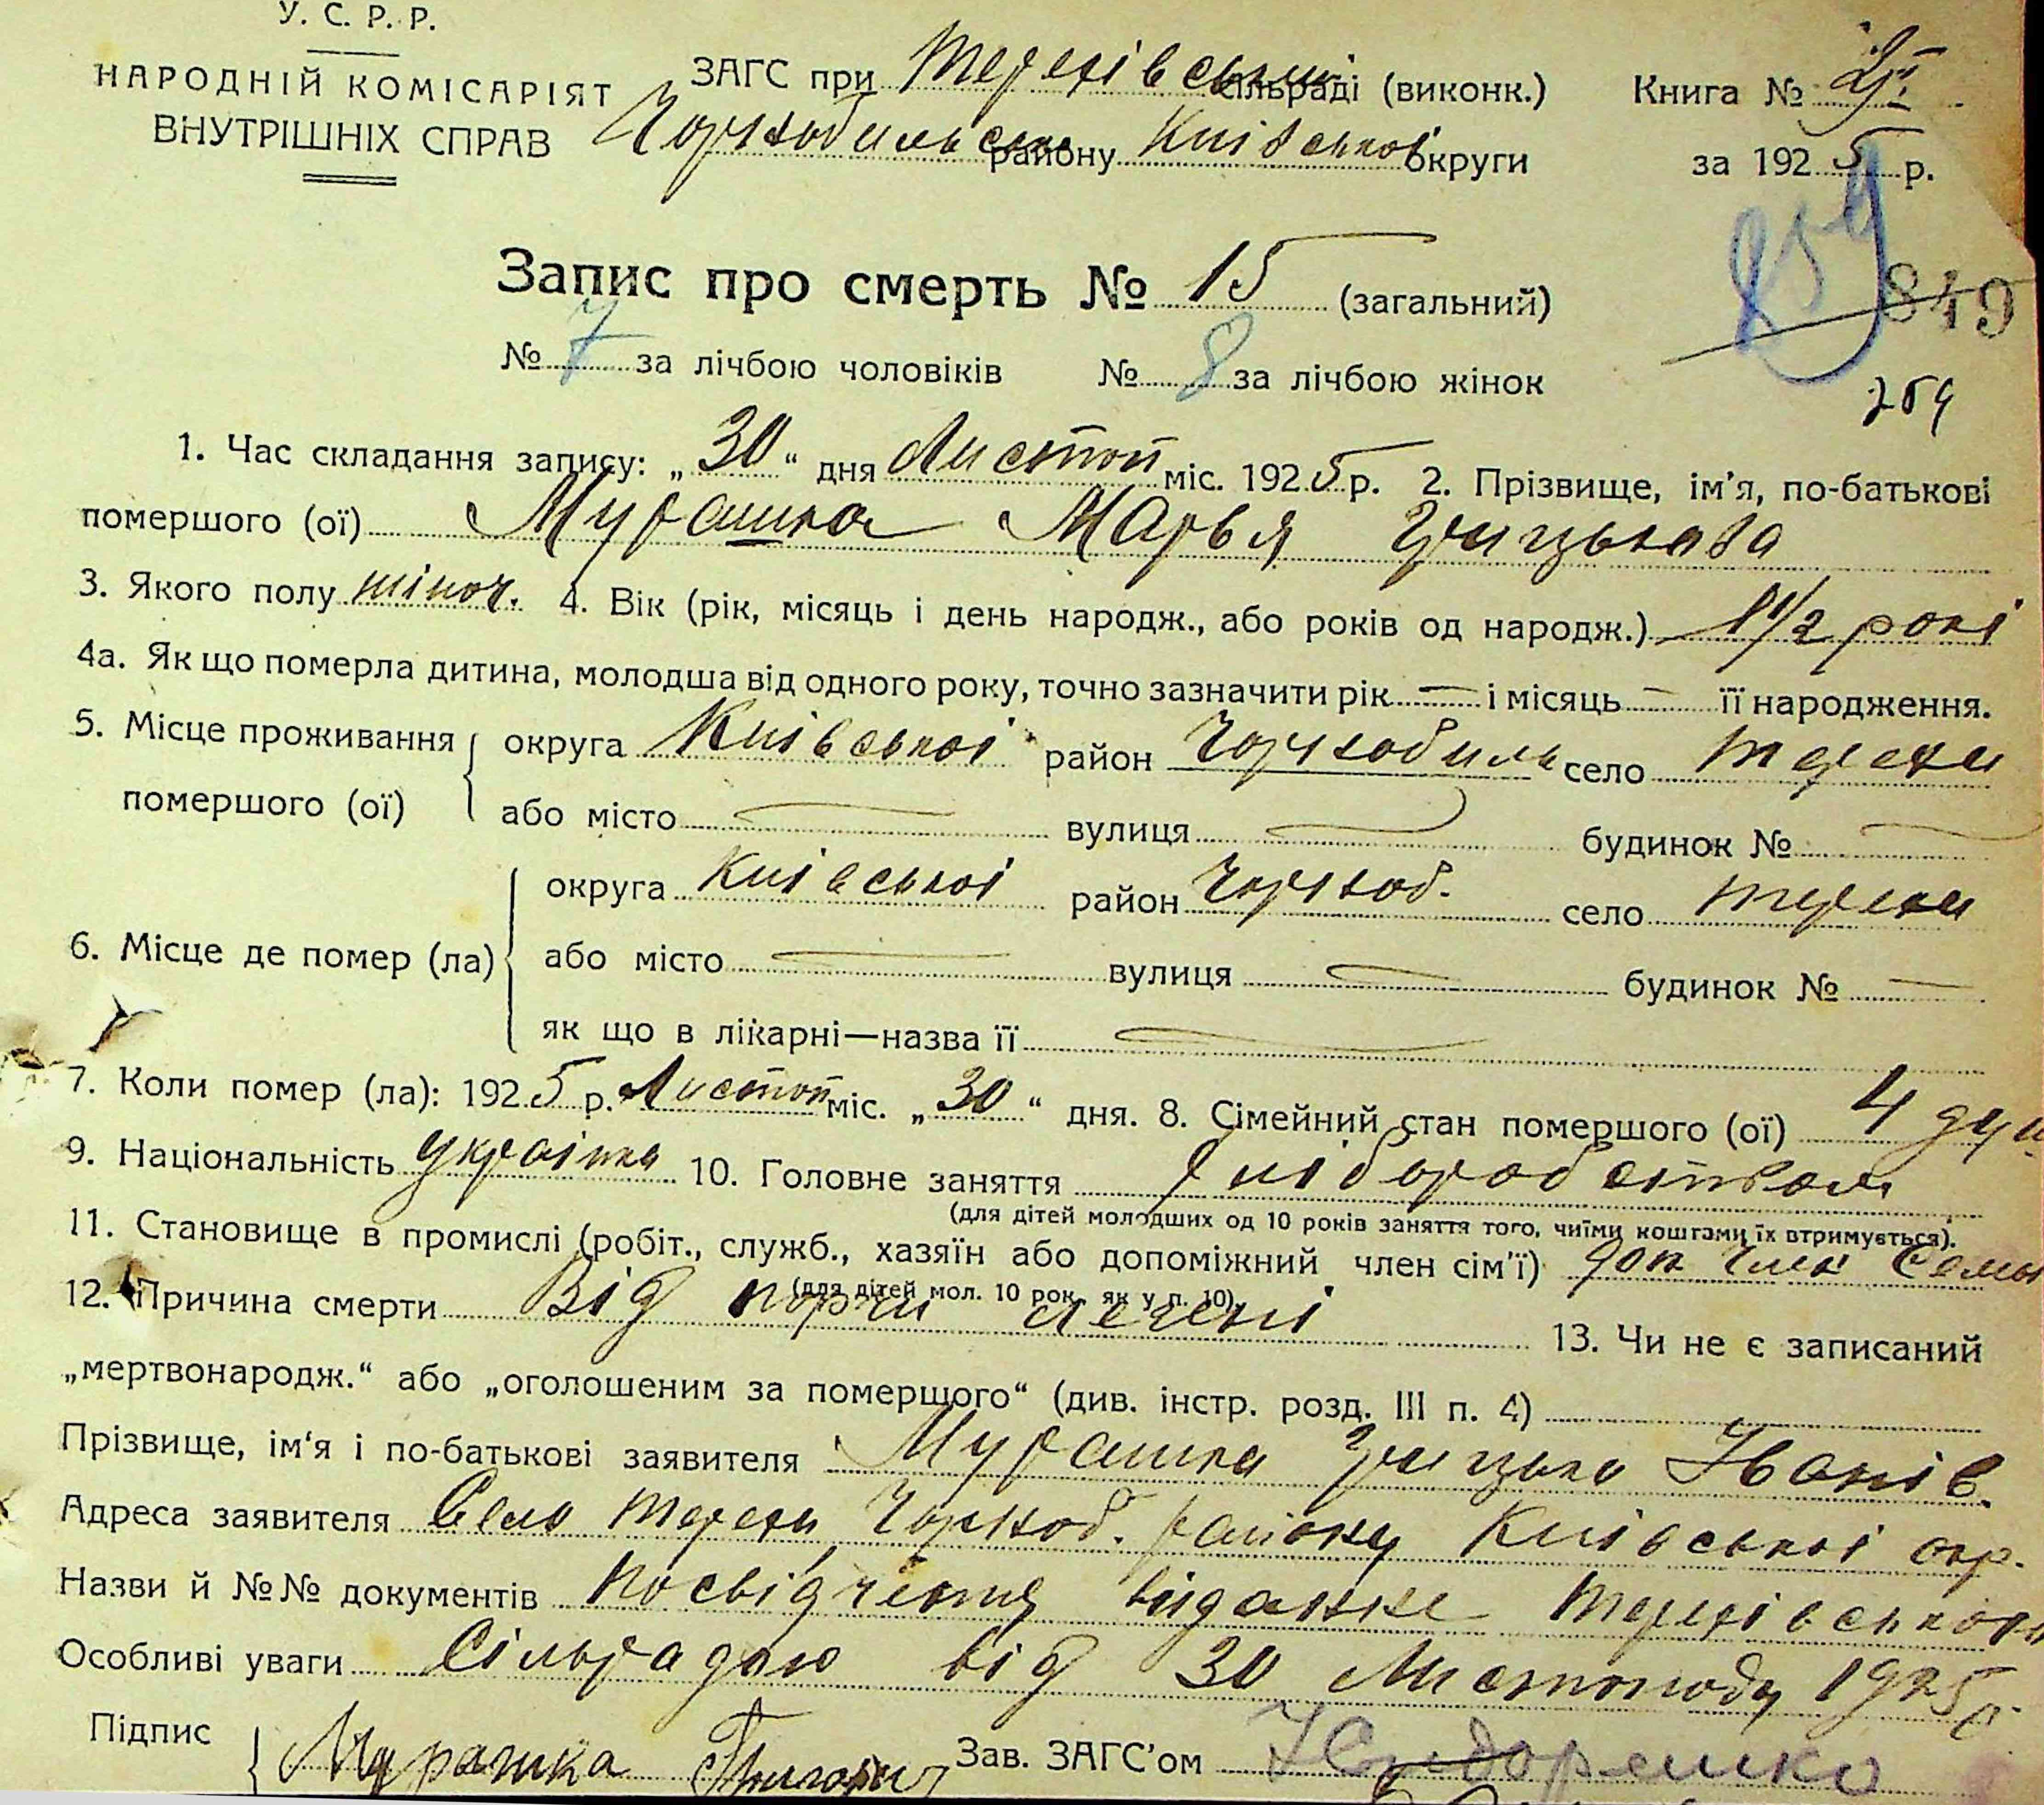 У. С. Р. Р.
НАРОДНІЙ КОМІСАРІЯТ
ВНУТРІШНІХ СПРАВ
ЗАГС при Терехівській сільраді (виконк.)
Чорнобильськ району Київської округи
Книга №
за 1925 р.
Запис про смерть № 15 (загальний)
859
849
№ 7 за лічбою чоловіків № 8 за лічбою жінок
259
1. Час складання запису: „30“ дня Листоп міс. 1925 р. 2. Прізвище, ім'я, по-батькові
помершого (ої) Мурашка Марья Грицькова
3. Якого полу жіноч. 4. Вік (рік, місяць і день народж., або років од народж.) 1 1/2 рокі
4а. Як що померла дитина, молодша від одного року, точно зазначити рік — і місяць — її народження.
5. Місце проживання помершого (ої) округа Київської район Чорнобиль село Терехи
або місто — вулиця — будинок № —
6. Місце де помер (ла) округа Київської район Чорноб. село Терехи
або місто — вулиця — будинок № —
як що в лікарні—назва її —
7. Коли помер (ла): 1925 р. Листоп міс. „30“ дня. 8. Сімейний стан помершого (ої) 4 душ
9. Національність Українка 10. Головне заняття Хліборобством
(для дітей молодших од 10 років заняття того, чиїми коштами їх втримується).
11. Становище в промислі (робіт., служб., хазяїн або допоміжний член сім'ї) доп член Семьі
(для дітей мол. 10 рок., як у п. 10).
12. Причина смерти Від порчи печені 13. Чи не є записаний
„мертвонародж.“ або „оголошеним за померщого“ (див. інстр. розд. III п. 4)
Прізвище, ім'я і по-батькові заявителя Мурашка Грицько Іванів.
Адреса заявителя Село Терехи Чорноб. району Київської окр.
Назви й №№ документів Посвідченя видання Терехівською
Особливі уваги Сільрадою від 30 Листопаду 1925 р.
Підпис Мурашка Григорій Зав. ЗАГС'ом